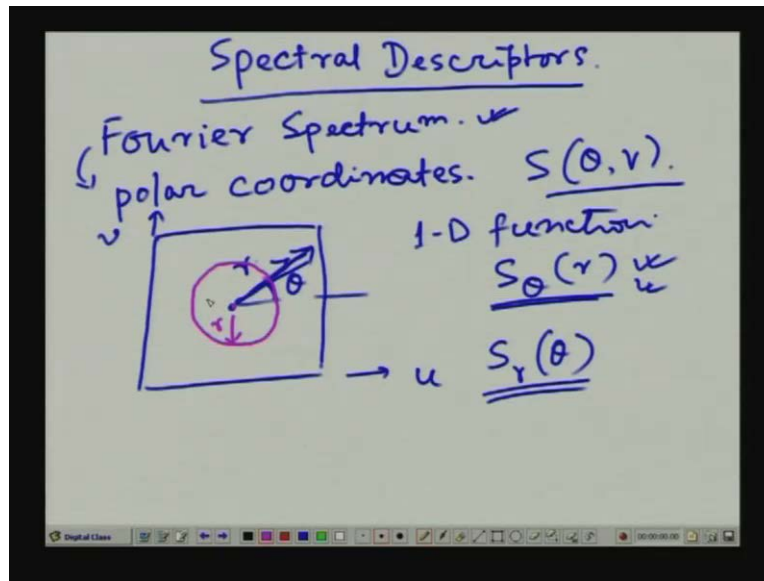 Spectral Descriptors.
Fourier Spectrum.
polar coordinates. S(θ,r).
v
1-D function.
r
θ
S_θ(r)
r
u S_r(θ)
Digital Class 00:00:00.00